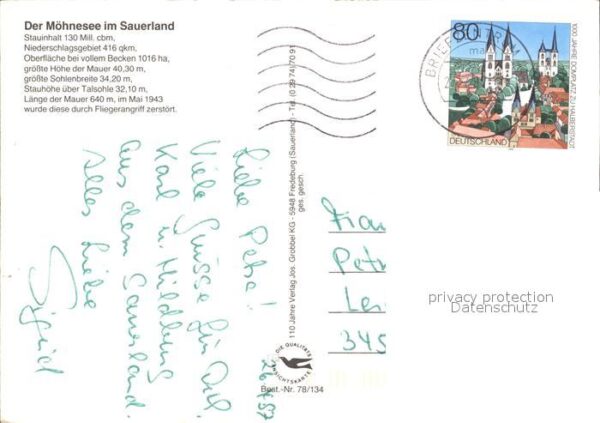 Der Möhnesee im Sauerland
Stauinhalt 130 Mill. cbm,
Niederschlagsgebiet 416 qkm,
Oberfläche bei vollem Becken 1016 ha,
größte Höhe der Mauer 40,30 m,
größte Sohlenbreite 34,20 m,
Stauhöhe über Talsohle 32,10 m,
Länge der Mauer 640 m, im Mai 1943
wurde diese durch Fliegerangriff zerstört.
80
1000 JAHRE DOMPLATZ ZU HALBERSTADT
DEUTSCHLAND
BRIEFZENTRUM
110 Jahre Verlag Jos. Grobbel KG - 5948 Fredeburg (Sauerland) - Tel. (0 29 74) 70 91
ges. gesch.
DIE QUALITÄTS
ANSICHTSKARTE
Best.-Nr. 78/134
Liebe Petra!
Viele Grüsse für Dich
Karl u. Hildburg
aus dem Sauerland.
Alles Liebe
Sigrid
Frau
Pet
345
privacy protection
Datenschutz